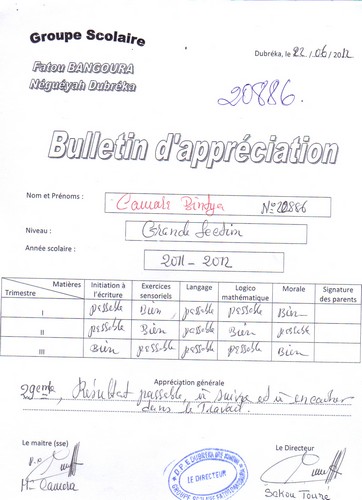 Groupe Scolaire
Fatou BANGOURA
Néguéyah Dubréka
Dubréka, le 22/06/2012
20886.
Bulletin d'appréciation
Nom et Prénoms : Camara Bintya N° 20886
Niveau : Grande Section
Année scolaire : 2011 - 2012
Matières Trimestre Initiation à l'écriture Exercices sensoriels Langage Logico mathématique Morale Signature des parents
I passable Bien passable passable Bien
II passable Bien passable Bien passable
III Bien passable passable passable Bien
Appréciation générale
29eme, Résultat passable, à suivre et à encadrer
dans le Travail.
Le maitre (sse)
Le Directeur
P.O
Mr Camara
D.P.E DUBREKA
LE DIRECTEUR
GROUPE SCOLAIRE
Sakou Touré